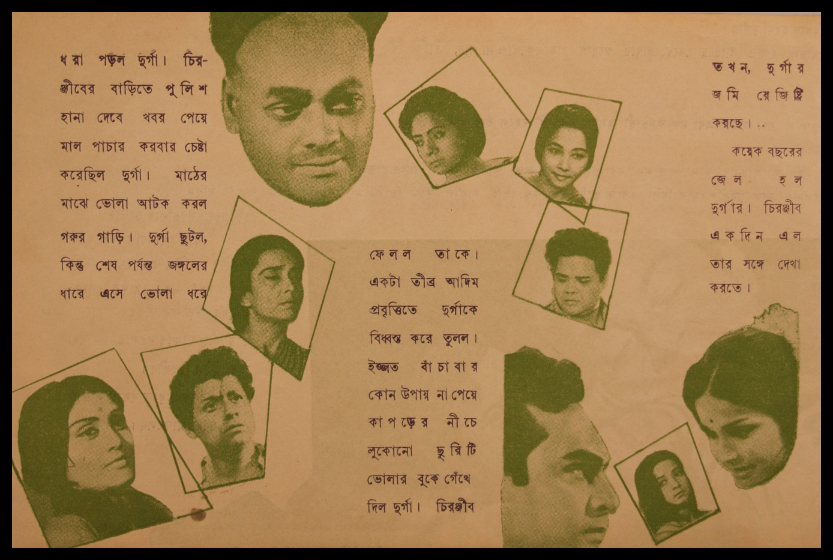 ধরা পড়ল দুর্গা। চির-
ঞ্জীবের বাড়িতে পুলিশ
হানা দেবে খবর পেয়ে
মাল পাচার করবার চেষ্টা
করেছিল দুর্গা। মাঠের
মাঝে ভোলা আটক করল
গরুর গাড়ি। দুর্গা ছুটল,
কিন্তু শেষ পর্যন্ত জঙ্গলের
ধারে এসে ভোলা ধরে
ফেলল তাকে।
একটা তীব্র আদিম
প্রবৃত্তিতে দুর্গাকে
বিধ্বস্ত করে তুলল।
ইজ্জত বাঁচাবার
কোন উপায় না পেয়ে
কাপড়ের নীচে
লুকোনো ছুরিটি
ভোলার বুকে গেঁথে
দিল দুর্গা। চিরঞ্জীব
তখন, দুর্গার
জমি রেজিষ্ট্রি
করছে। ..
কয়েক বছরের
জেল হল
দুর্গার। চিরঞ্জীব
একদিন এল
তার সঙ্গে দেখা
করতে।